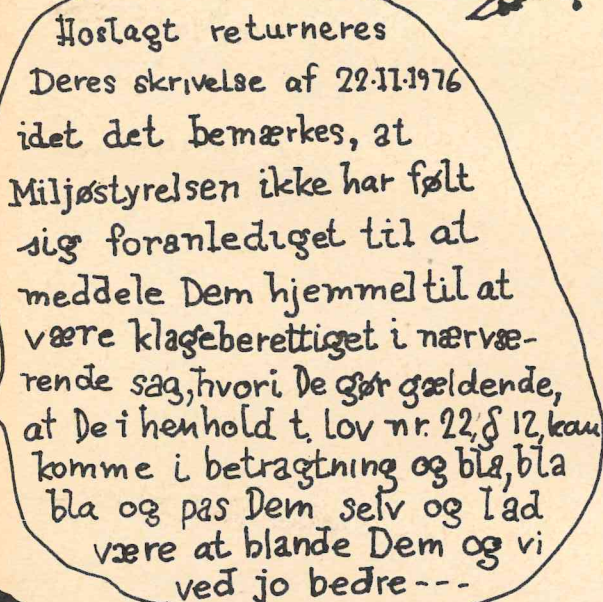 Hoslagt returneres
Deres skrivelse af 22.II.1976
idet det bemærkes, at
Miljøstyrelsen ikke har følt
sig foranlediget til at
meddele Dem hjemmel til at
være klageberettiget i nærvæ-
rende sag, hvori De gør gældende,
at De i henhold t. lov nr. 22, § 12, kan
komme i betragtning og bla, bla
bla og pas Dem selv og lad
være at blande Dem og vi
ved jo bedre ---